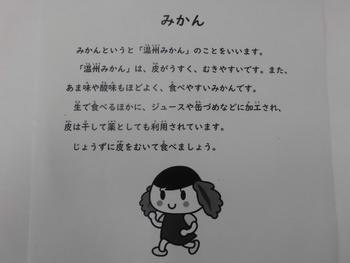 みかん
みかんというと「温州みかん」のことをいいます。
「温州みかん」は、皮がうすく、むきやすいです。また、
あま味や酸味もほどよく、食べやすいみかんです。
生で食べるほかに、ジュースや缶づめなどに加工され、
皮は干して薬としても利用されています。
じょうずに皮をむいて食べましょう。